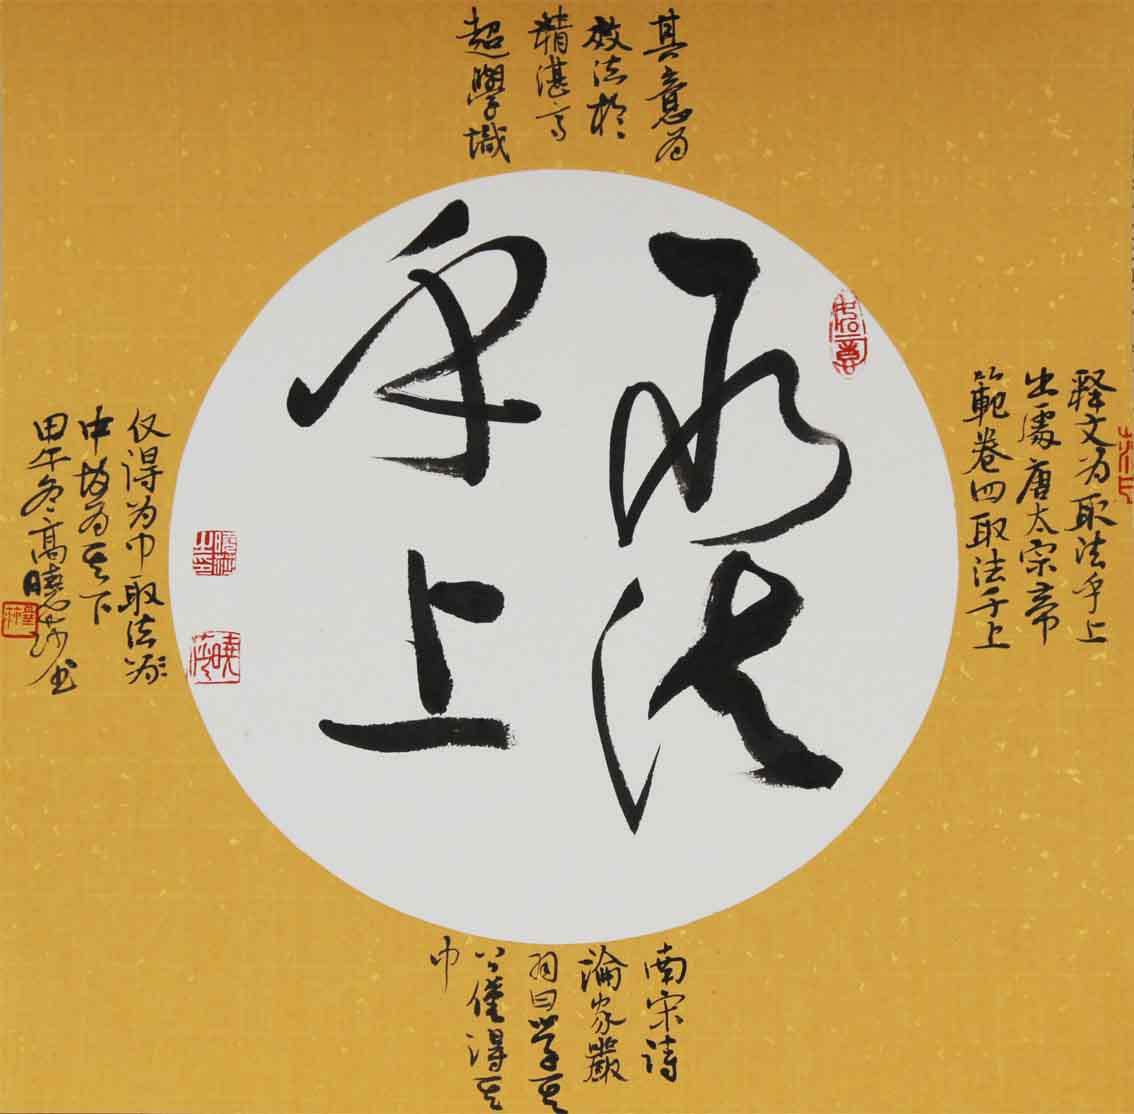 取法
乎上
释文为取法乎上
出處唐太宗帝
範卷四取法于上
仅得为中取法於
中故为其下
其意为
效法於
精湛高
超學識
南宋诗
論家嚴
羽曰學其
上僅得其
中
甲午冬高曉莎书
曉莎